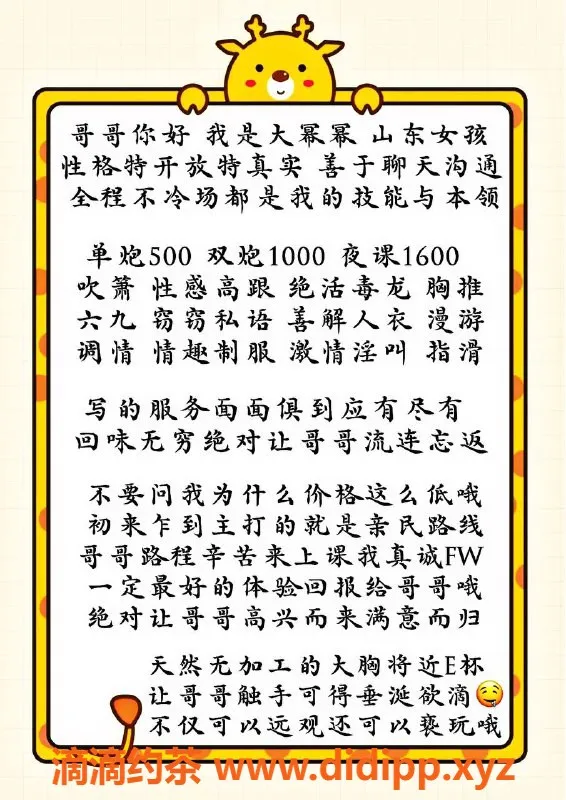 哥哥你好 我是大幂幂 山东女孩
性格特开放特真实 善于聊天沟通
全程不冷场都是我的技能与本领
单炮500 双炮1000 夜课1600
吹箫 性感高跟 绝活毒龙 胸推
六九 窃窃私语 善解人衣 漫游
调情 情趣制服 激情淫叫 指滑
写的服务面面俱到应有尽有
回味无穷绝对让哥哥流连忘返
不要问我为什么价格这么低哦
初来乍到主打的就是亲民路线
哥哥路程辛苦来上课我真诚FW
一定最好的体验回报给哥哥哦
绝对让哥哥高兴而来满意而归
天然无加工的大胸将近E杯
让哥哥触手可得垂涎欲滴🤤
不仅可以远观还可以亵玩哦
滴滴约茶 www.didipp.xyz